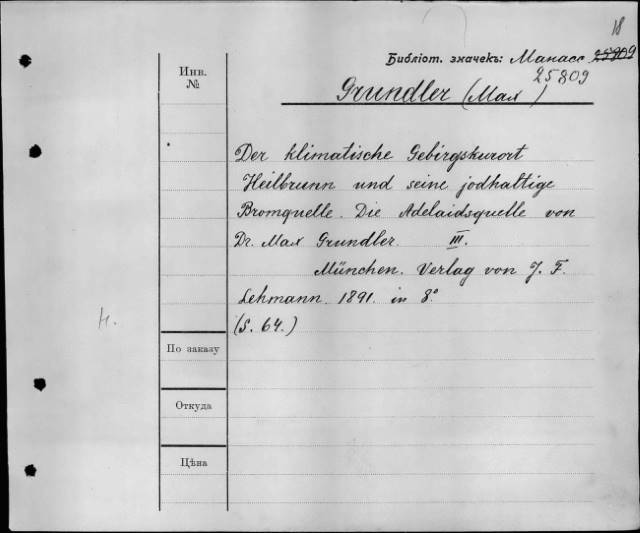 18
Библіот. значекъ: Манасс 25809
25809
Инв.
№
Grundler (Max)
Der klimatische Gebirgskurort
Heilbrunn und seine jodhaltige
Bromquelle. Die Adelaidsquelle von
Dr. Max Grundler. III.
München. Verlag von J. F.
Lehmann. 1891. in 8°
(S. 64.)
н.
По заказу
Откуда
Цѣна